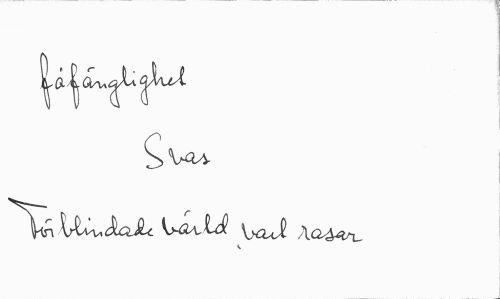 fåfänglighet
Svas
Förblindade värld, vart rasar